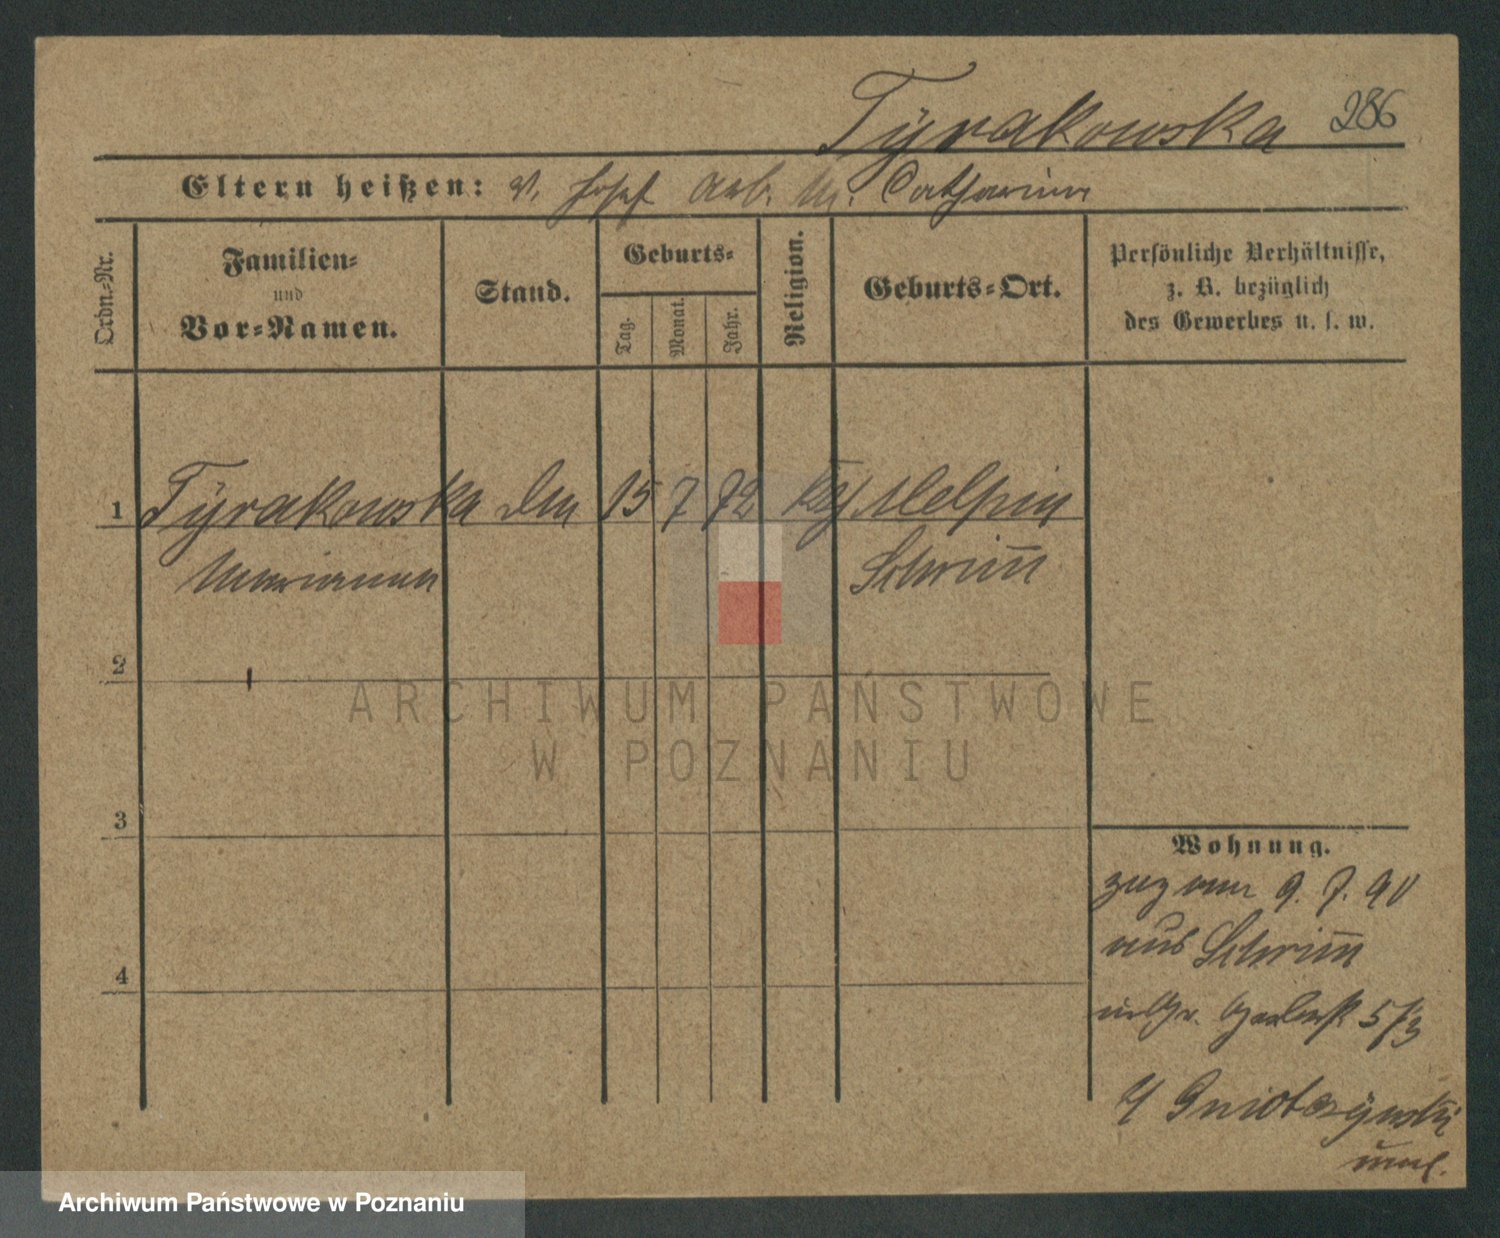 Tyrakowska 286
Eltern heißen: V. Josef Arb. M. Catharina
Ordn.-Nr.
Familien-
und
Vor-Namen.
Stand.
Geburts-
Tag.
Monat.
Jahr.
Religion.
Geburts-Ort.
Persönliche Verhältnisse,
z. B. bezüglich
des Gewerbes u. s. w.
1 Tyrakowska 15 7 72 Melpin
Marianna Schrim̅
2
3
4
Wohnung.
9. 7. 90
aus Schrim̅
5/3
ARCHIWUM PAŃSTWOWE
W POZNANIU
Archiwum Państwowe w Poznaniu